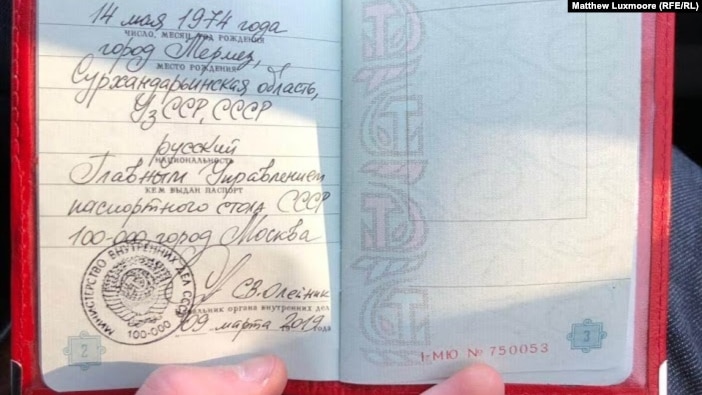 Matthew Luxmoore (RFE/RL)
14 мая 1974 года
ЧИСЛО, МЕСЯЦ, ГОД РОЖДЕНИЯ
город Термез,
МЕСТО РОЖДЕНИЯ
Сурхандарьинская область,
УзССР, СССР
русский
НАЦИОНАЛЬНОСТЬ
Главным Управлением
КЕМ ВЫДАН ПАСПОРТ
паспортного стола СССР
100-000 город Москва
МИНИСТЕРСТВО ВНУТРЕННИХ ДЕЛ СССР
100-000
С.В. Олейник
органа внутренних дел
09 марта 2019 года
2
I-МЮ № 750053
3